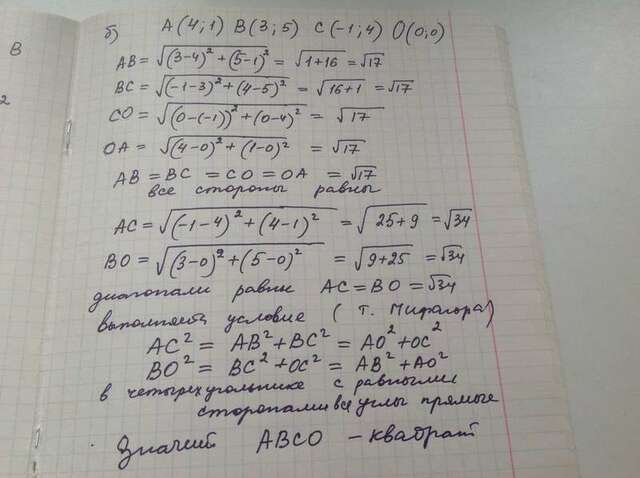 В
2
б) A(4;1) B(3;5) C(-1;4) O(0;0)
AB = √((3-4)² + (5-1)²) = √(1+16) = √17
BC = √((-1-3)² + (4-5)²) = √(16+1) = √17
CO = √((0-(-1))² + (0-4)²) = √17
OA = √((4-0)² + (1-0)²) = √17
AB = BC = CO = OA = √17
все стороны равны
AC = √((-1-4)² + (4-1)²) = √(25+9) = √34
BO = √((3-0)² + (5-0)²) = √(9+25) = √34
диагонали равны AC = BO = √34
выполняется условие (т. Пифагора)
AC² = AB² + BC² = AO² + OC²
BO² = BC² + OC² = AB² + AO²
в четырехугольнике с равными
сторонами все углы прямые
Значит ABCO - квадрат